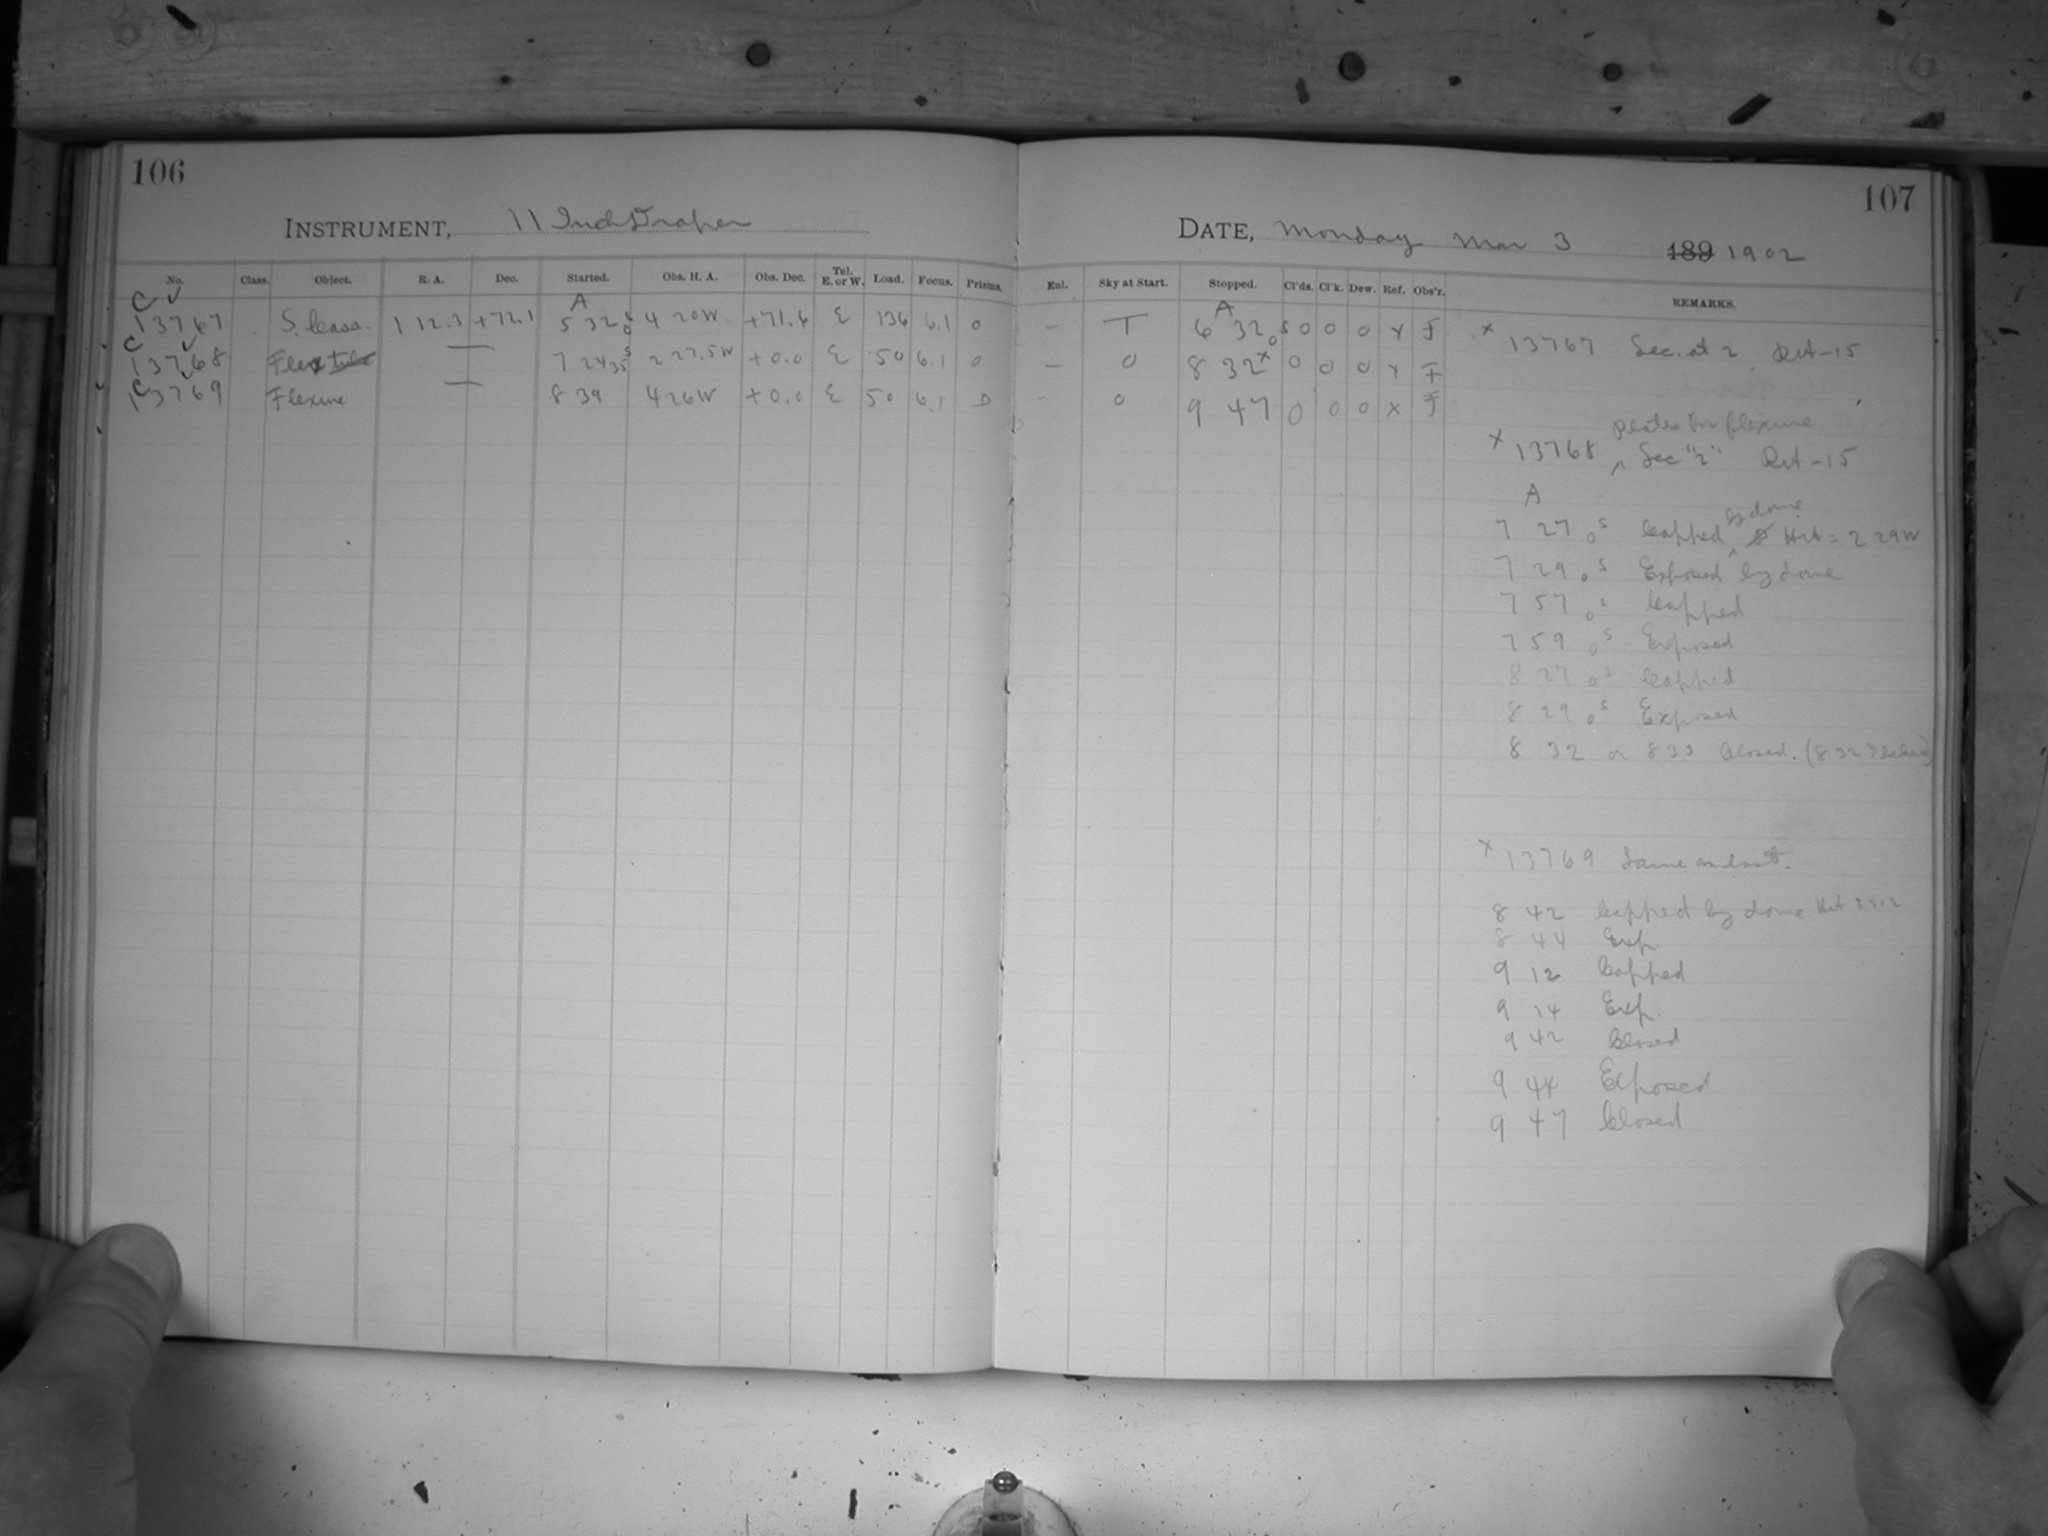 106
INSTRUMENT, 11 Inch Draper
No. Class. Object. R. A. Dec. Started. Obs. H. A. Obs. Dec. Tel. E. or W. Load. Focus. Prisms.
C ✓ A
13767 S. Cass. 1 12.3 +72.1 5 32 0s 4 20W +71.6 E 136 6.1 0
C ✓
13768 Flex 7 24 35s 2 27.5W +0.0 E 50 6.1 0
C
13769 Flexure 8 39 4 26W +0.0 E 50 6.1 0
107
DATE, Monday Mar 3 189 1902
Enl. Sky at Start. Stopped. Cl'ds. Cl'k. Dew. Ref. Obs'r. REMARKS.
A
– T 6 32 0s 0 0 0 x F
– 0 8 32x 0 0 0 x F
– 0 9 47 0 0 0 x F
x 13767 Sec. at 2 Rit-15
plates for flexure
x 13768 ^ Sec "2" Rit-15
A
by dome
7 27 0s Capped ^ = 2 29W
7 29 0s Exposed by dome
7 57 0s Capped
7 59 0s Exposed
8 27 0s Capped
8 29 0s Exposed
8 32 or 8 33 Closed. (8 32
x 13769 Same as last.
8 42 Capped by dome
8 44 Exp.
9 12 Capped
9 14 Exp.
9 42 Closed
9 44 Exposed
9 47 Closed